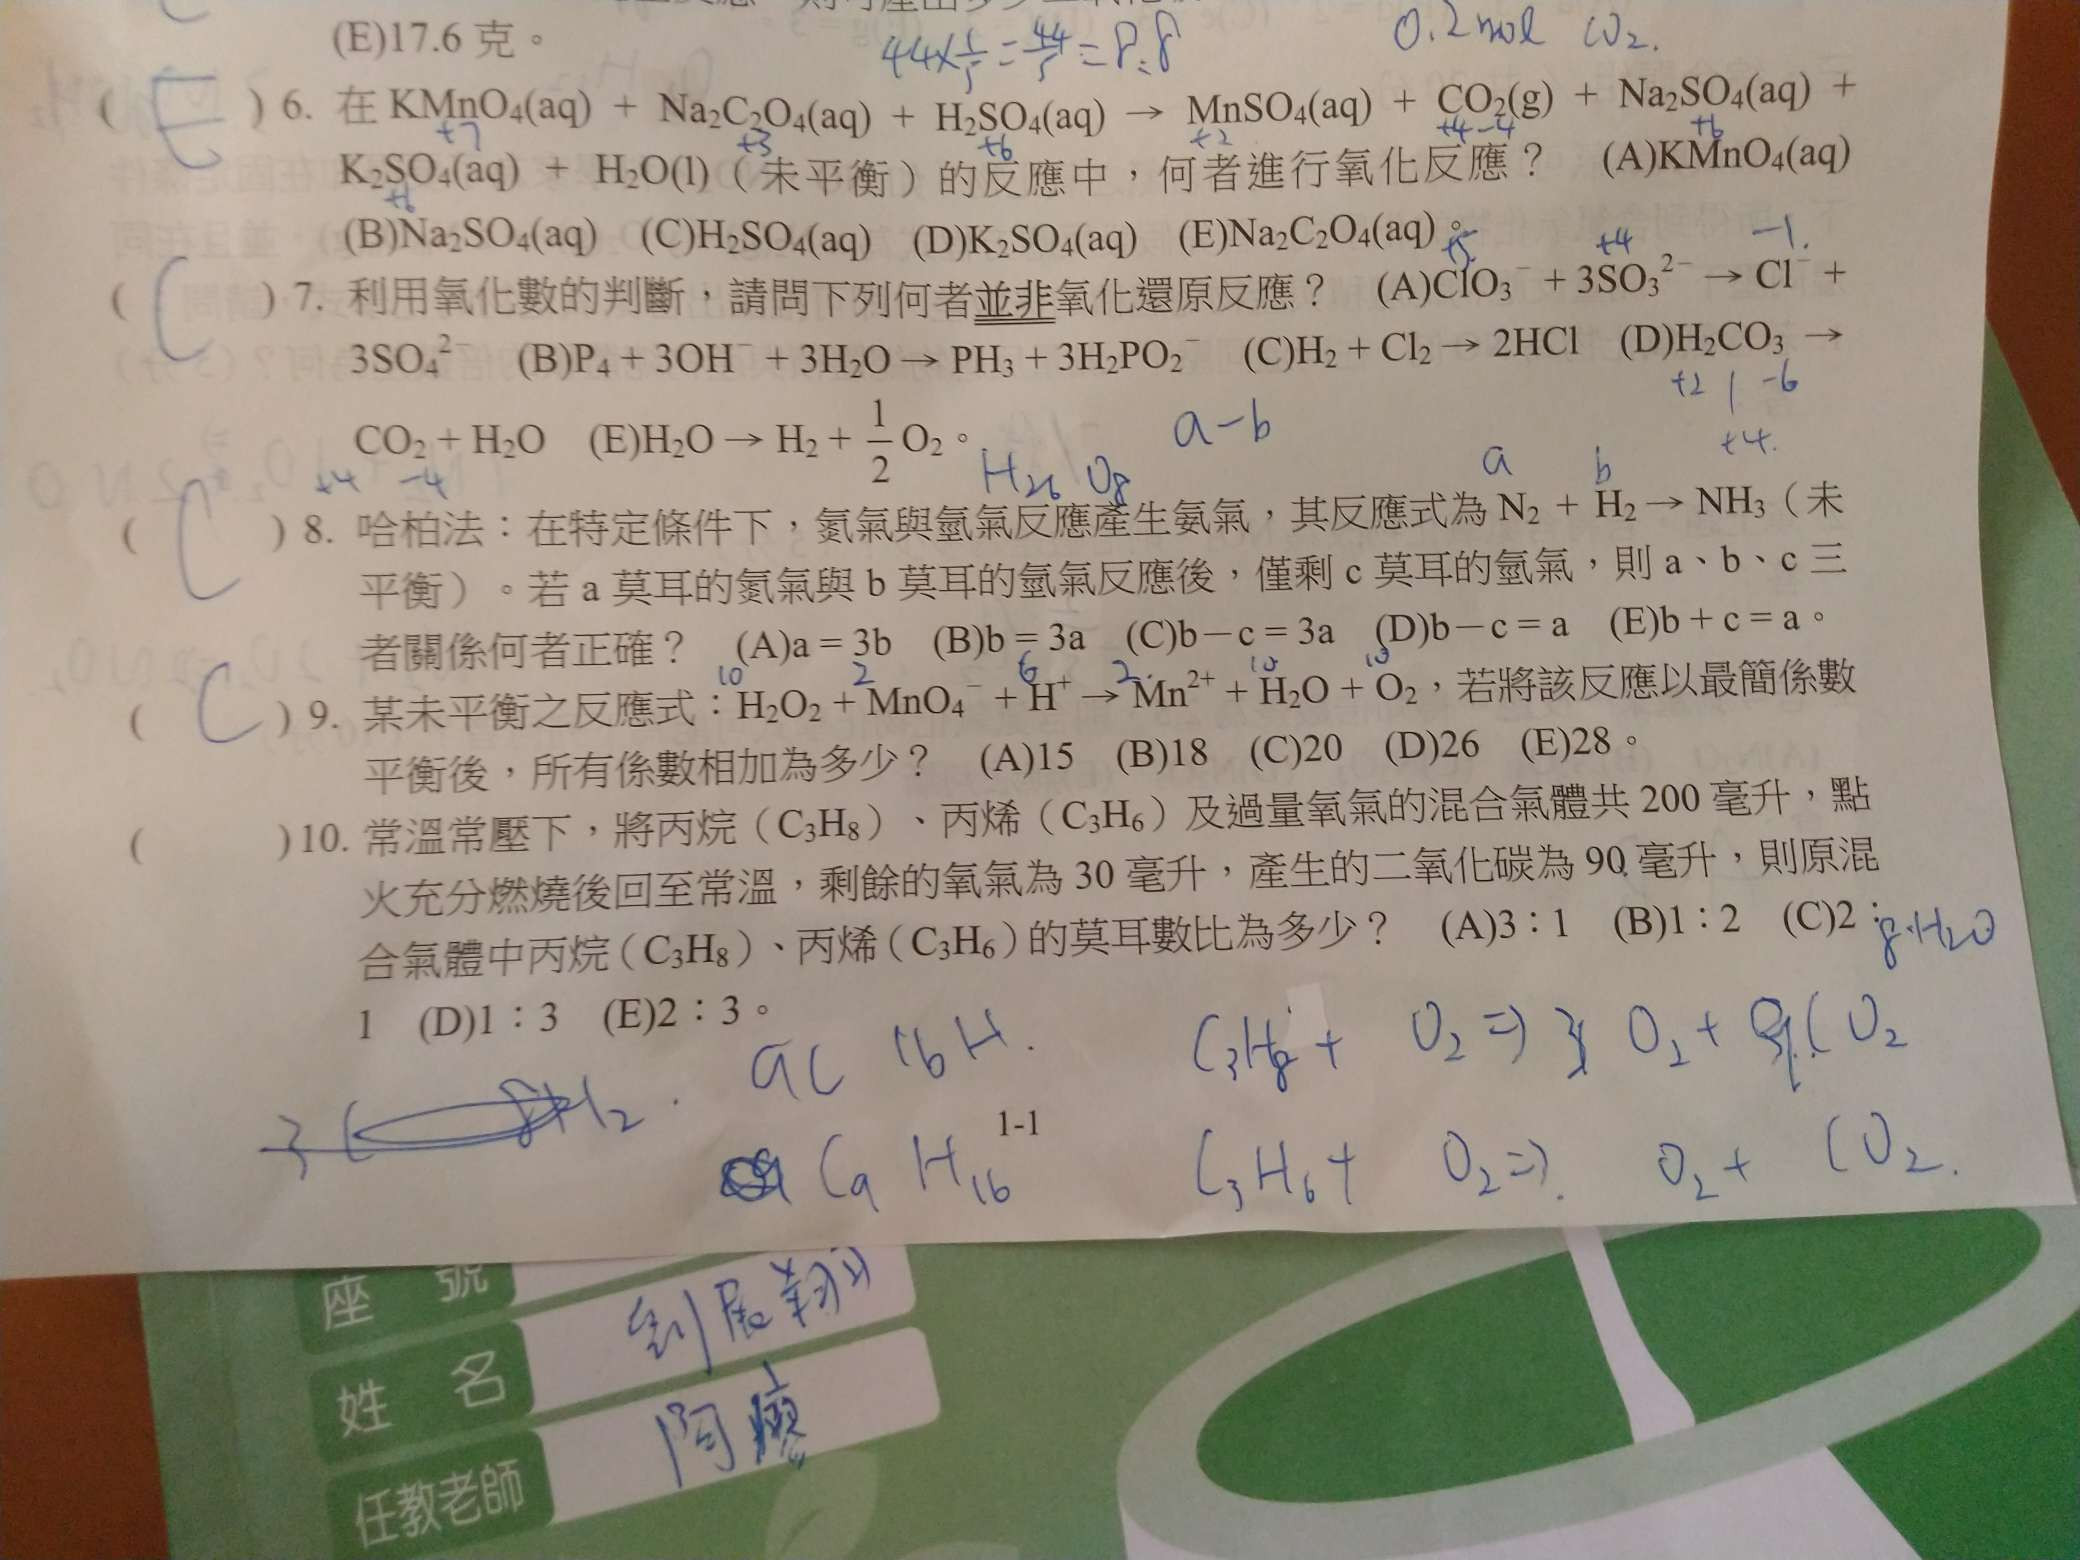 (E)17.6 克。
44×1/5=44/5=8.8
0.2mol CO2.
( E ) 6. 在 KMnO4(aq) + Na2C2O4(aq) + H2SO4(aq) → MnSO4(aq) + CO2(g) + Na2SO4(aq) +
+7 +3 +6 +2 +4-4 +6
K2SO4(aq) + H2O(l)(未平衡)的反應中,何者進行氧化反應? (A)KMnO4(aq)
+6
(B)Na2SO4(aq) (C)H2SO4(aq) (D)K2SO4(aq) (E)Na2C2O4(aq)。
+5 +4 -1.
( C ) 7. 利用氧化數的判斷,請問下列何者並非氧化還原反應? (A)ClO3⁻ + 3SO3²⁻ → Cl⁻ +
3SO4²⁻ (B)P4 + 3OH⁻ + 3H2O → PH3 + 3H2PO2⁻ (C)H2 + Cl2 → 2HCl (D)H2CO3 →
+2 | -6
+4.
CO2 + H2O (E)H2O → H2 + 1/2 O2。
+4 -4
a-b
H26 O8
a b
( C ) 8. 哈柏法:在特定條件下,氮氣與氫氣反應產生氨氣,其反應式為 N2 + H2 → NH3(未
平衡)。若 a 莫耳的氮氣與 b 莫耳的氫氣反應後,僅剩 c 莫耳的氫氣,則 a、b、c 三
者關係何者正確? (A)a = 3b (B)b = 3a (C)b-c = 3a (D)b-c = a (E)b + c = a。
10 2 6 2. 10 10
( C ) 9. 某未平衡之反應式:H2O2 + MnO4⁻ + H⁺ → Mn²⁺ + H2O + O2,若將該反應以最簡係數
平衡後,所有係數相加為多少? (A)15 (B)18 (C)20 (D)26 (E)28。
( ) 10. 常溫常壓下,將丙烷(C3H8)、丙烯(C3H6)及過量氧氣的混合氣體共 200 毫升,點
火充分燃燒後回至常溫,剩餘的氧氣為 30 毫升,產生的二氧化碳為 90 毫升,則原混
合氣體中丙烷(C3H8)、丙烯(C3H6)的莫耳數比為多少? (A)3:1 (B)1:2 (C)2:
8.H2O
1 (D)1:3 (E)2:3。
9C 16H.
C3H8+ O2⇒ 3 O2+ 9 CO2
C9 H16
C3H6+ O2⇒. O2+ CO2.
1-1
座號
姓名
劉展翔
任教老師